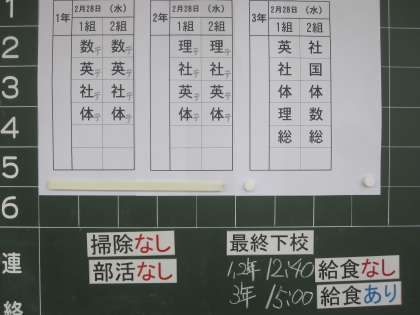 1
2
3
4
5
6
連
絡
1年 2月28日 (水)
1組 2組
数テ 数テ
英テ 英テ
社テ 社テ
体テ 体テ
2年 2月28日 (水)
1組 2組
理テ 理テ
社テ 社テ
英テ 英テ
体テ 体テ
3年 2月28日 (水)
1組 2組
英 社
社 国
体 体
理 数
総 総
掃除なし
部活なし
最終下校
1,2年 12:40 給食なし
3年 15:00 給食あり